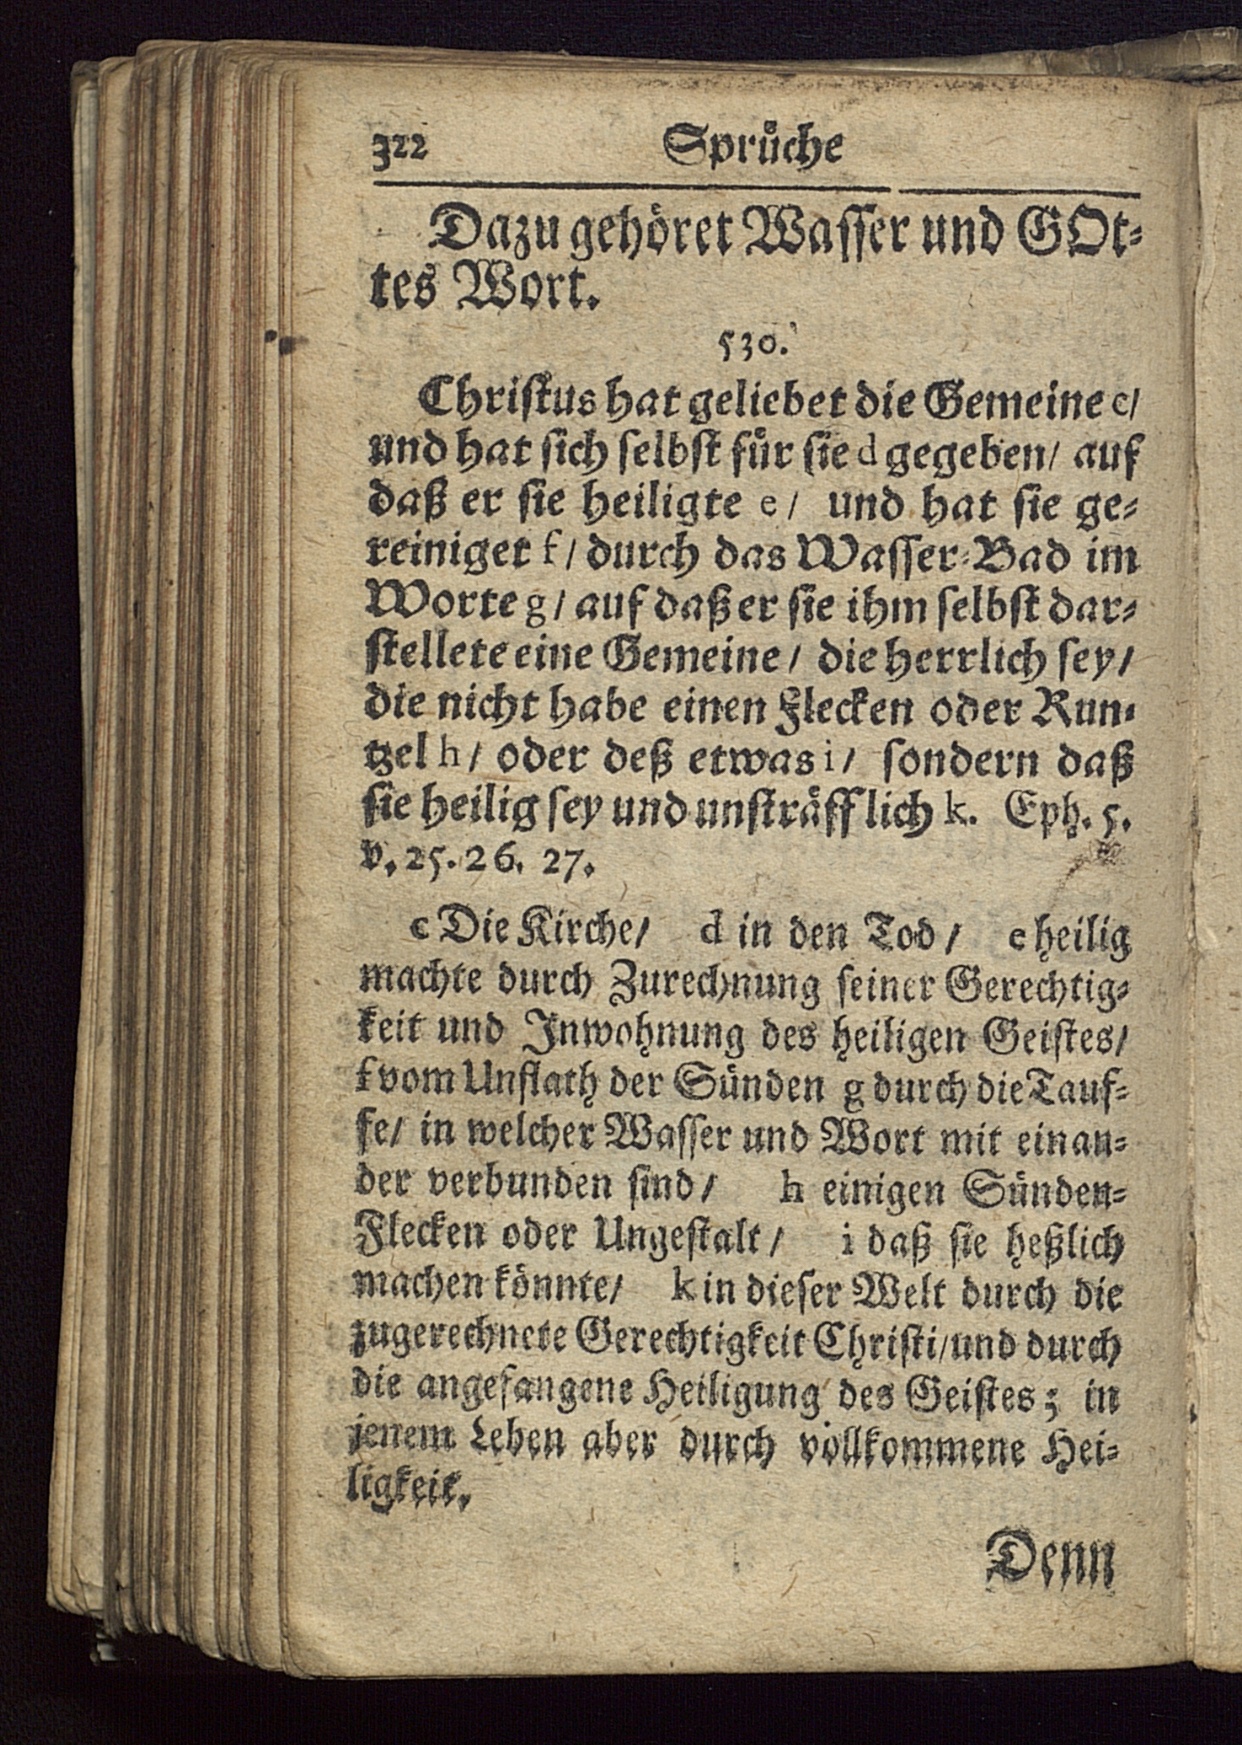 322 Sprüche
Dazu gehöret Wasser und GOt-
tes Wort.
530.
Christus hat geliebet die Gemeine c/
und hat sich selbst für sie d gegeben/ auf
daß er sie heiligte e/ und hat sie ge-
reiniget f/ durch das Wasser-Bad im
Worte g/ auf daß er sie ihm selbst dar-
stellete eine Gemeine/ die herrlich sey/
die nicht habe einen Flecken oder Run-
tzel h/ oder deß etwas i/ sondern daß
sie heilig sey und unsträfflich k. Eph. 5.
v. 25. 26. 27.
c Die Kirche/ d in den Tod/ e heilig
machte durch Zurechnung seiner Gerechtig-
keit und Inwohnung des heiligen Geistes/
f vom Unflath der Sünden g durch die Tauf-
fe/ in welcher Wasser und Wort mit einan-
der verbunden sind/ h einigen Sünden-
Flecken oder Ungestalt/ i daß sie heßlich
machen könnte/ k in dieser Welt durch die
zugerechnete Gerechtigkeit Christi/ und durch
die angefangene Heiligung des Geistes; in
jenem Leben aber durch vollkommene Hei-
ligkeit.
Denn